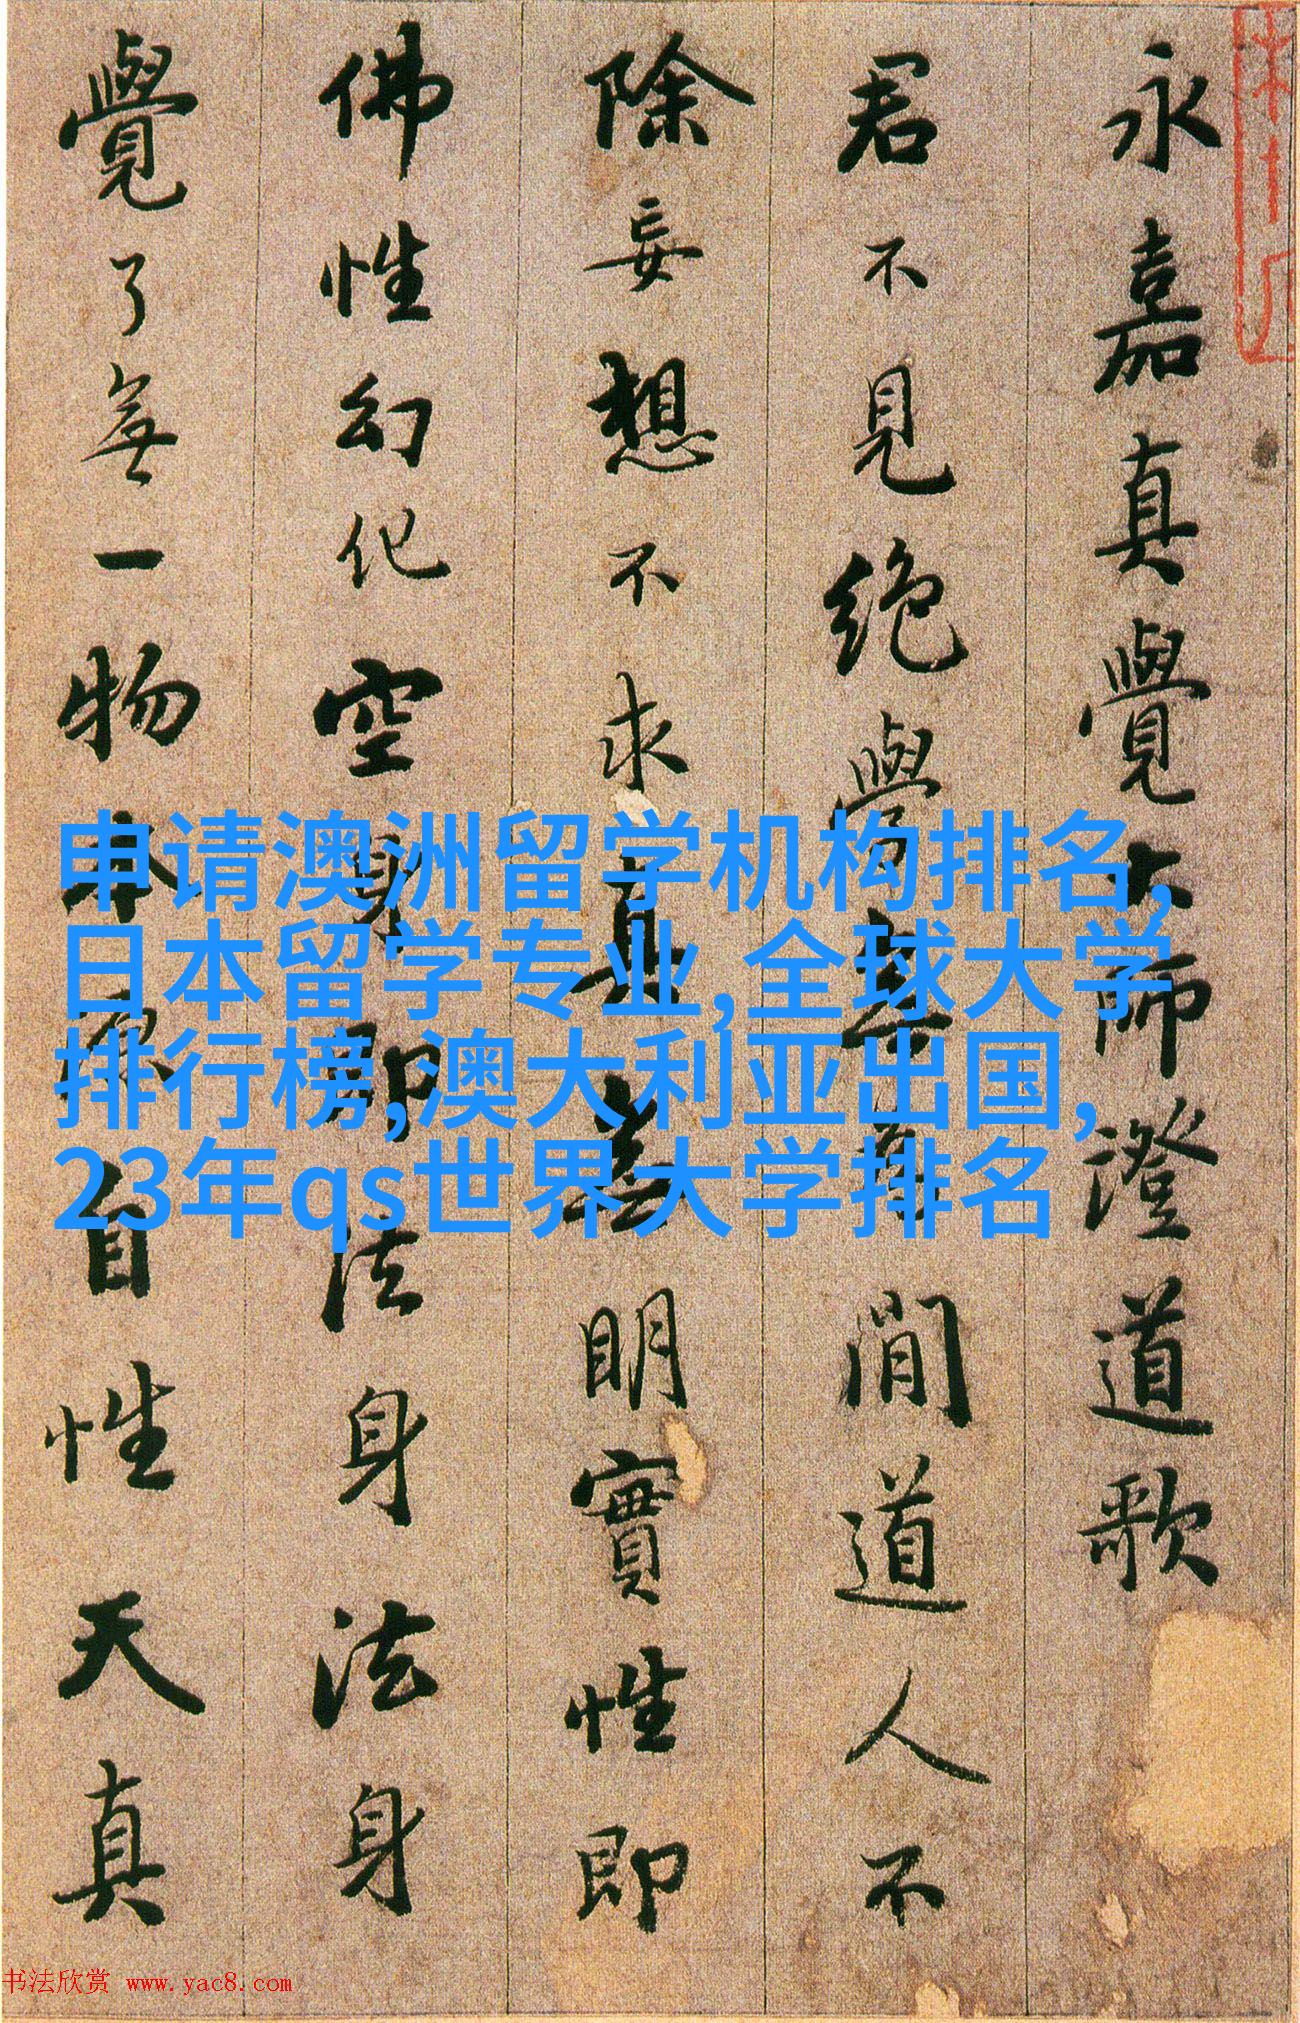 永嘉真覺大師澄道歌
君不見絕學無為閒道人不
除妄想不求真無明實性即
佛性幻化空身即法身法身
覺了無一物本源自性天真
申请澳洲留学机构排名,
日本留学专业,全球大学
排行榜,澳大利亚出国,
23年qs世界大学排名
书法欣赏 www.yac8.com